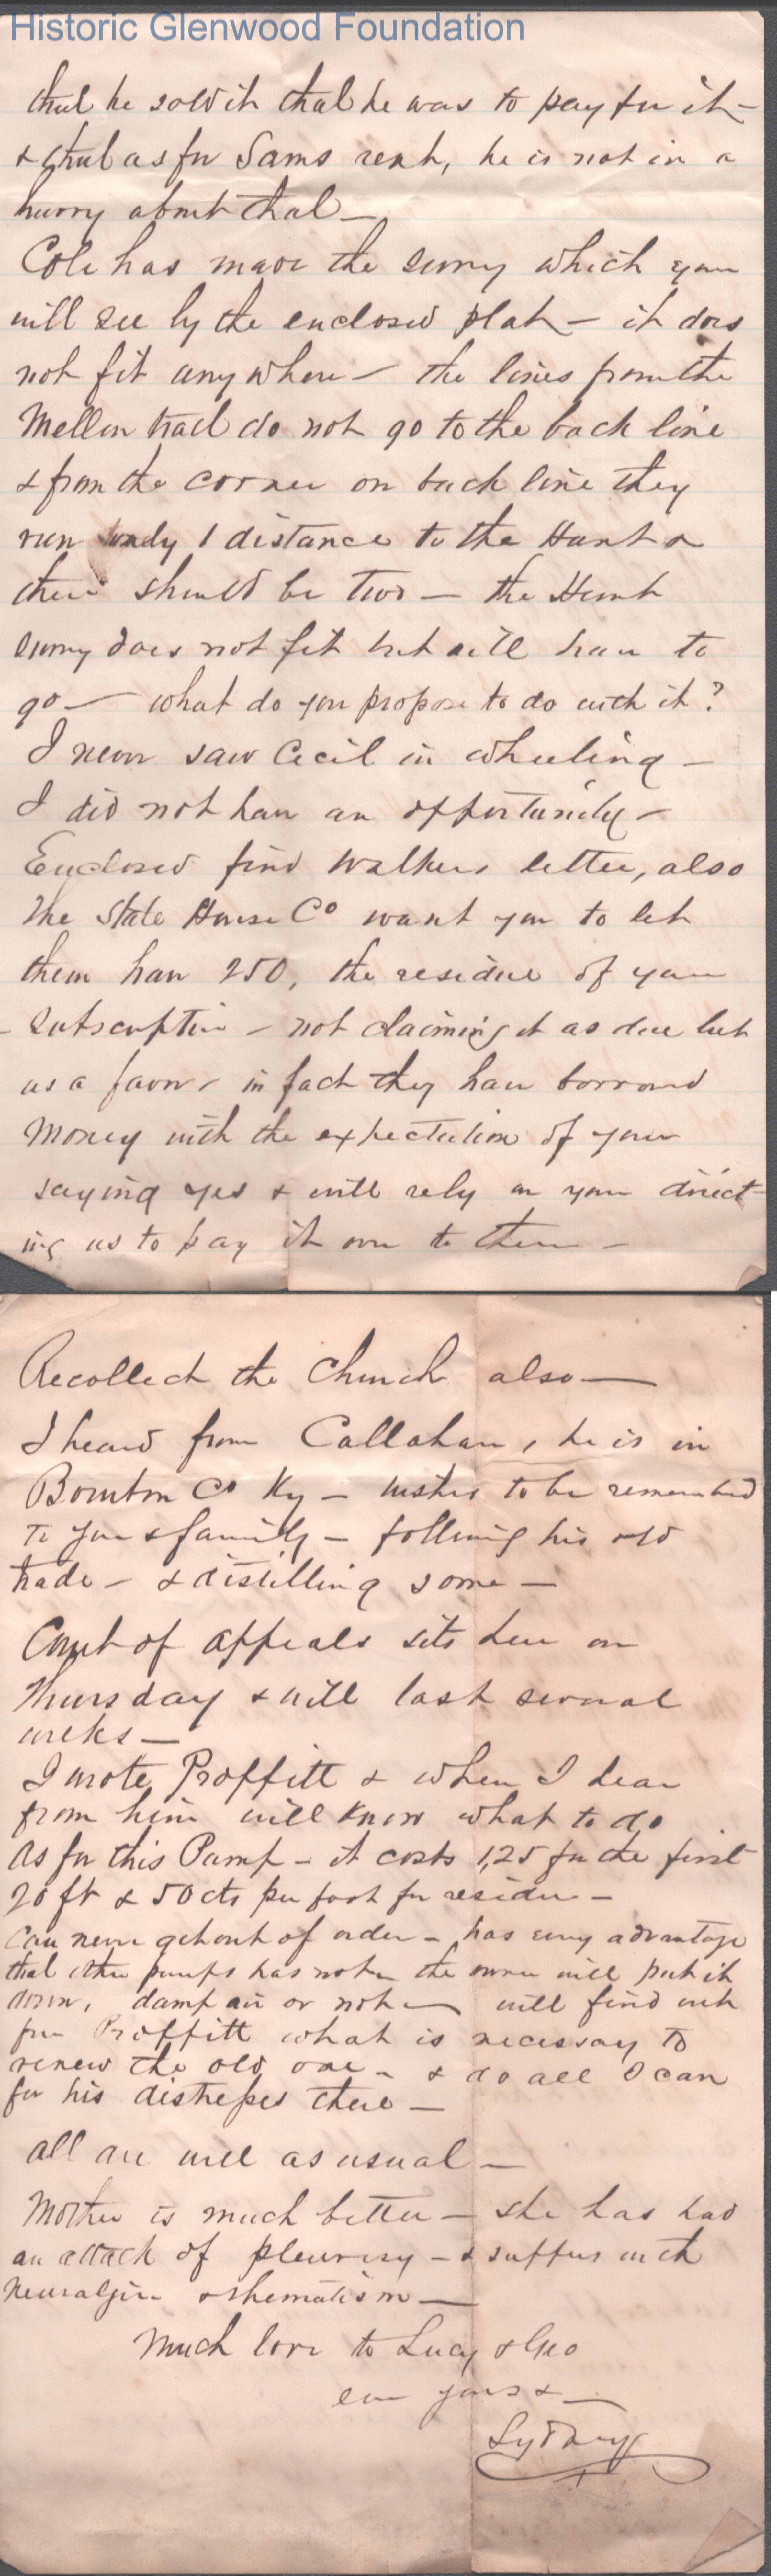 Historic Glenwood Foundation
that he sold it that he was to pay for it –
& that as for Sams rent, he is not in a
hurry about that –
Cole has made the survey which you
will see by the enclosed plat – it does
not fit any where – the lines from the
Mellon tract do not go to the back line
& from the corner on back line they
run only 1 distance to the Hunt &
there should be two – the Hunt
survey does not fit but will have to
go – what do you propose to do with it?
I never saw Cecil in wheeling –
I did not have an opportunity –
Enclosed find Walkers letter, also
The State House Co want you to let
them have 250, the residue of your
subscription – not claiming it as due but
as a favor, in fact they have borrowed
money with the expectation of your
saying yes & will rely on your direct-
ing us to pay it over to them –
Recollect the Church also –
I heard from Callahan, he is in
Bourbon Co Ky – wishes to be remembered
to you & family – following his old
trade – & distilling some –
Court of appeals sits here on
Thursday & will last several
weeks –
I wrote Proffitt & when I hear
from him will know what to do
As for this Pump – it costs 1,25 for the first
20 ft & 50 cts per foot for residue –
Can never get out of order – has every advantage
that other pumps has not – the owner will put it
down, damp air or not – will find out
from Proffitt what is necessary to
renew the old one – & do all I can
for his distresses there –
All are well as usual –
Mother is much better – she has had
an attack of pleurisy – & suffers with
neuralgia & rhematism –
Much love to Lucy & Geo
ever yours & –
Sydney